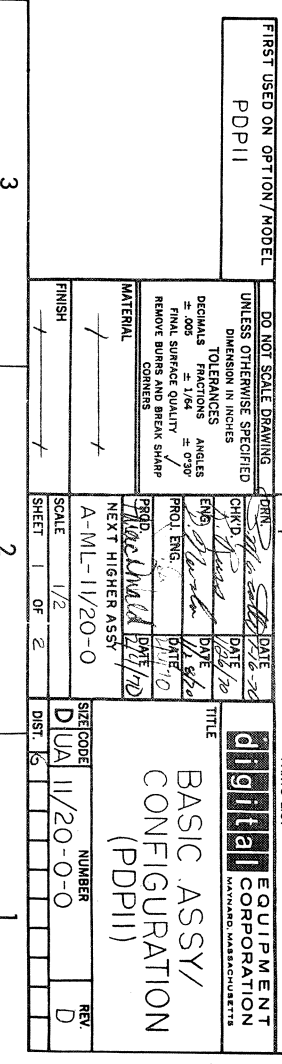 FIRST USED ON OPTION/MODEL
PDP11
DO NOT SCALE DRAWING
UNLESS OTHERWISE SPECIFIED
DIMENSION IN INCHES
TOLERANCES
DECIMALS FRACTIONS ANGLES
± .005 ± 1/64 ± 0°30'
FINAL SURFACE QUALITY
REMOVE BURRS AND BREAK SHARP
CORNERS
MATERIAL
FINISH
DRN.
DATE
CHK'D.
DATE
ENG.
DATE
PROJ. ENG.
DATE
PROD.
DATE
NEXT HIGHER ASSY
A-ML-11/20-0
SCALE 1/2
SHEET 1 OF 2
digital EQUIPMENT
CORPORATION
MAYNARD, MASSACHUSETTS
TITLE
BASIC ASSY/
CONFIGURATION
(PDP11)
SIZE CODE NUMBER REV.
D UA 11/20-0-0 D
DIST.
3 2 1